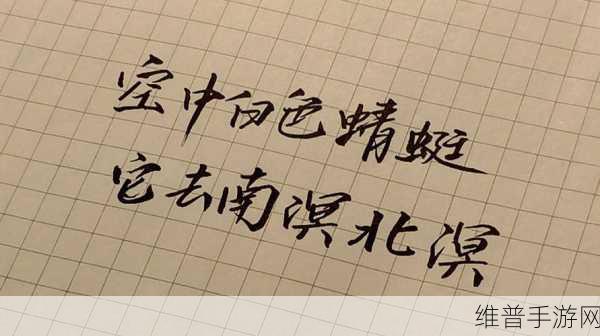 空中白色蜻蜓
它去南溟北溟
维普手游网